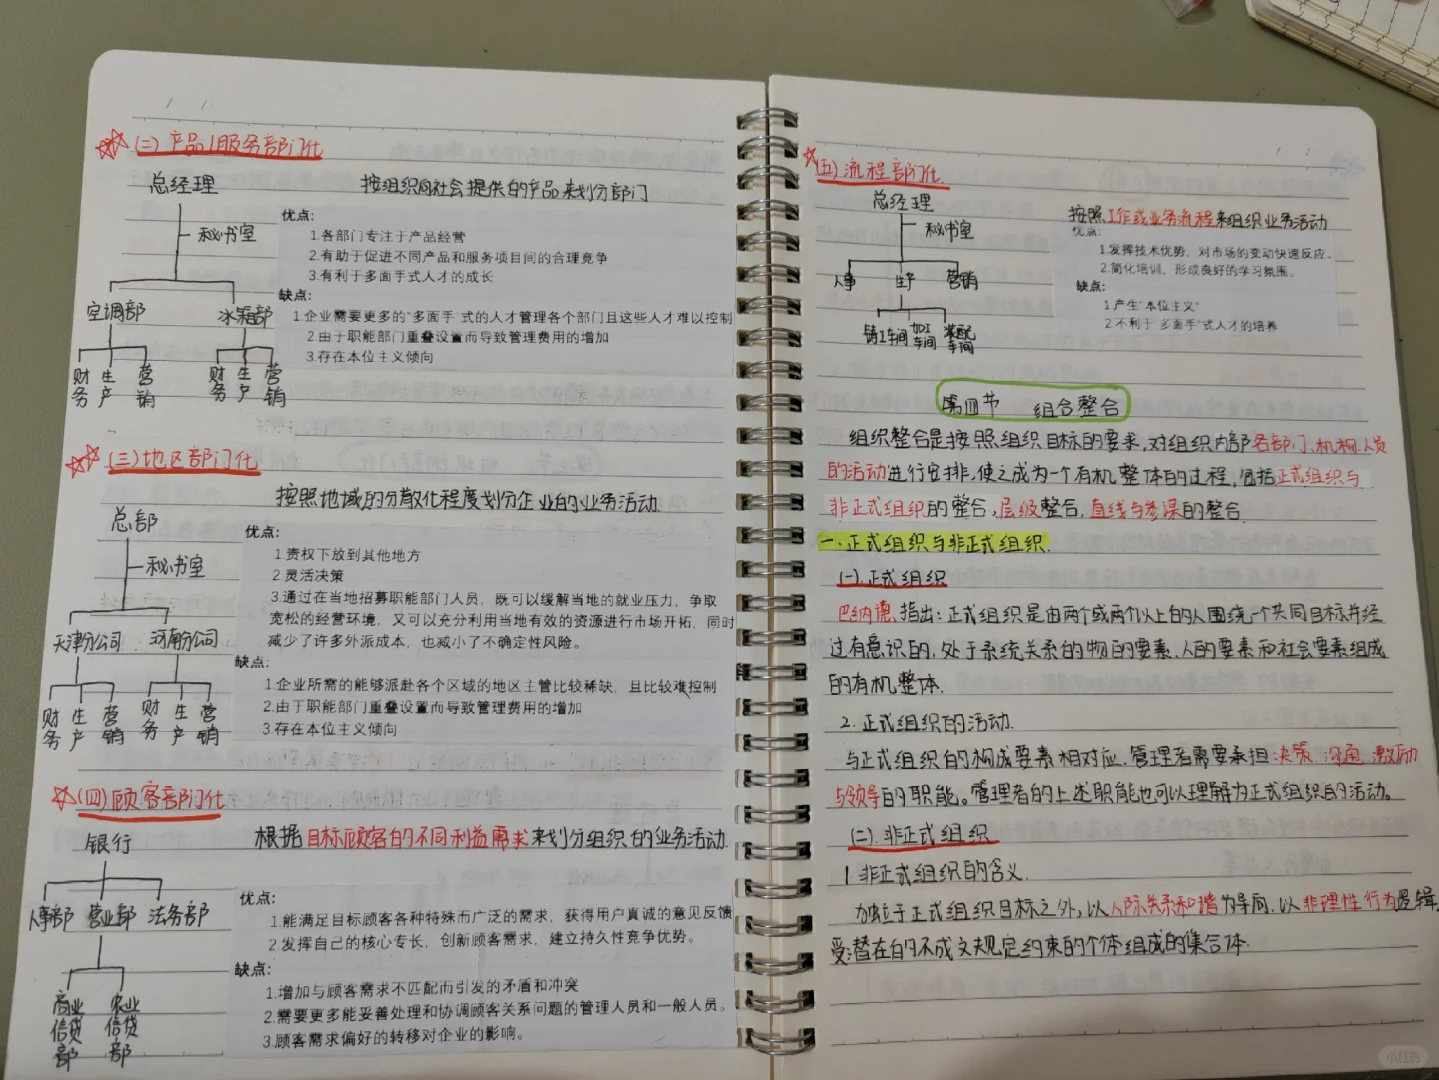 (二)产品/服务部门化
总经理
按组织向社会提供的产品来划分部门
秘书室
空调部
冰箱部
财务 生产 营销
财务 生产 营销
优点:
1.各部门专注于产品经营
2.有助于促进不同产品和服务项目间的合理竞争
3.有利于多面手式人才的成长
缺点:
1.企业需要更多的"多面手"式的人才管理各个部门且这些人才难以控制
2.由于职能部门重叠设置而导致管理费用的增加
3.存在本位主义倾向
(三)地区部门化
按照地域的分散化程度划分企业的业务活动.
总部
秘书室
天津分公司
河南分公司
财务 生产 营销
财务 生产 营销
优点:
1 责权下放到其他地方
2 灵活决策
3.通过在当地招募职能部门人员，既可以缓解当地的就业压力，争取
宽松的经营环境，又可以充分利用当地有效的资源进行市场开拓，同时
减少了许多外派成本，也减小了不确定性风险。
缺点:
1.企业所需的能够派赴各个区域的地区主管比较稀缺，且比较难控制
2.由于职能部门重叠设置而导致管理费用的增加
3.存在本位主义倾向
(四)顾客部门化
银行
根据目标顾客的不同利益需求来划分组织的业务活动.
人事部 营业部 法务部
商业信贷部
农业信贷部
优点:
1.能满足目标顾客各种特殊而广泛的需求，获得用户真诚的意见反馈
2 发挥自己的核心专长，创新顾客需求，建立持久性竞争优势。
缺点:
1.增加与顾客需求不匹配而引发的矛盾和冲突
2.需要更多能妥善处理和协调顾客关系问题的管理人员和一般人员。
3.顾客需求偏好的转移对企业的影响。
(五)流程部门化
总经理
秘书室
人事 生产 营销
铸工车间 加工车间 装配车间
按照工作或业务流程来组织业务活动
优点:
1.发挥技术优势，对市场的变动快速反应。
2.简化培训，形成良好的学习氛围。
缺点:
1 产生"本位主义"
2 不利于"多面手"式人才的培养
第四节 组合整合
组织整合是按照组织目标的要求,对组织内部各部门、机构、人员
的活动进行安排,使之成为一个有机整体的过程,包括正式组织与
非正式组织的整合,层级整合,直线与参谋的整合.
一.正式组织与非正式组织.
(一).正式组织
巴纳德指出:正式组织是由两个或两个以上的人围绕一个共同目标并经
过有意识的,处于系统关系的物的要素、人的要素和社会要素组成
的有机整体.
2.正式组织的活动.
与正式组织的构成要素相对应,管理者需要承担决策、沟通、激励
与领导的职能。管理者的上述职能也可以理解为正式组织的活动。
(二).非正式组织
1.非正式组织的含义.
独立于正式组织目标之外,以人际关系和谐为导向,以非理性行为逻辑,
受潜在的不成文规定约束的个体组成的集合体.
小红书